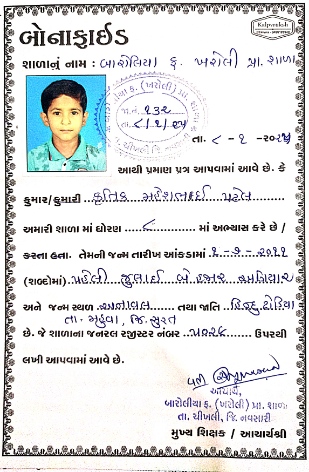 Kalpvruksh
બોનાફાઈડ
શાળાનું નામ : બારોલિયા ફ. ખરોલી પ્રા. શાળા
જા.નં. ૧૩૨
તા. ૮ - ૧ - ૨૦૨૫
આથી પ્રમાણ પત્ર આપવામાં આવે છે. કે
કુમાર/કુમારી કૃતિક મહેશભાઈ પટેલ
અમારી શાળા માં ધોરણ ૮ માં અભ્યાસ કરે છે /
કરતા હતા. તેમની જન્મ તારીખ આંકડામાં ૧ - ૭ - ૨૦૧૧
(શબ્દોમાં) પહેલી જુલાઈ બે હજાર અગિયાર
અને જન્મ સ્થળ અનાવલ તથા જાતિ હિન્દુ ધોડિયા
તા. મહુવા, જિ. સુરત
છે. જે શાળાના જનરલ રજીસ્ટર નંબર ૫૦૨૪ ઉપરથી
લખી આપવામાં આવે છે.
આચાર્ય,
બારોલીયા ફ. (ખરોલી) પ્રા. શાળા
તા. ચીખલી, જિ. નવસારી
મુખ્ય શિક્ષક / આચાર્યશ્રી